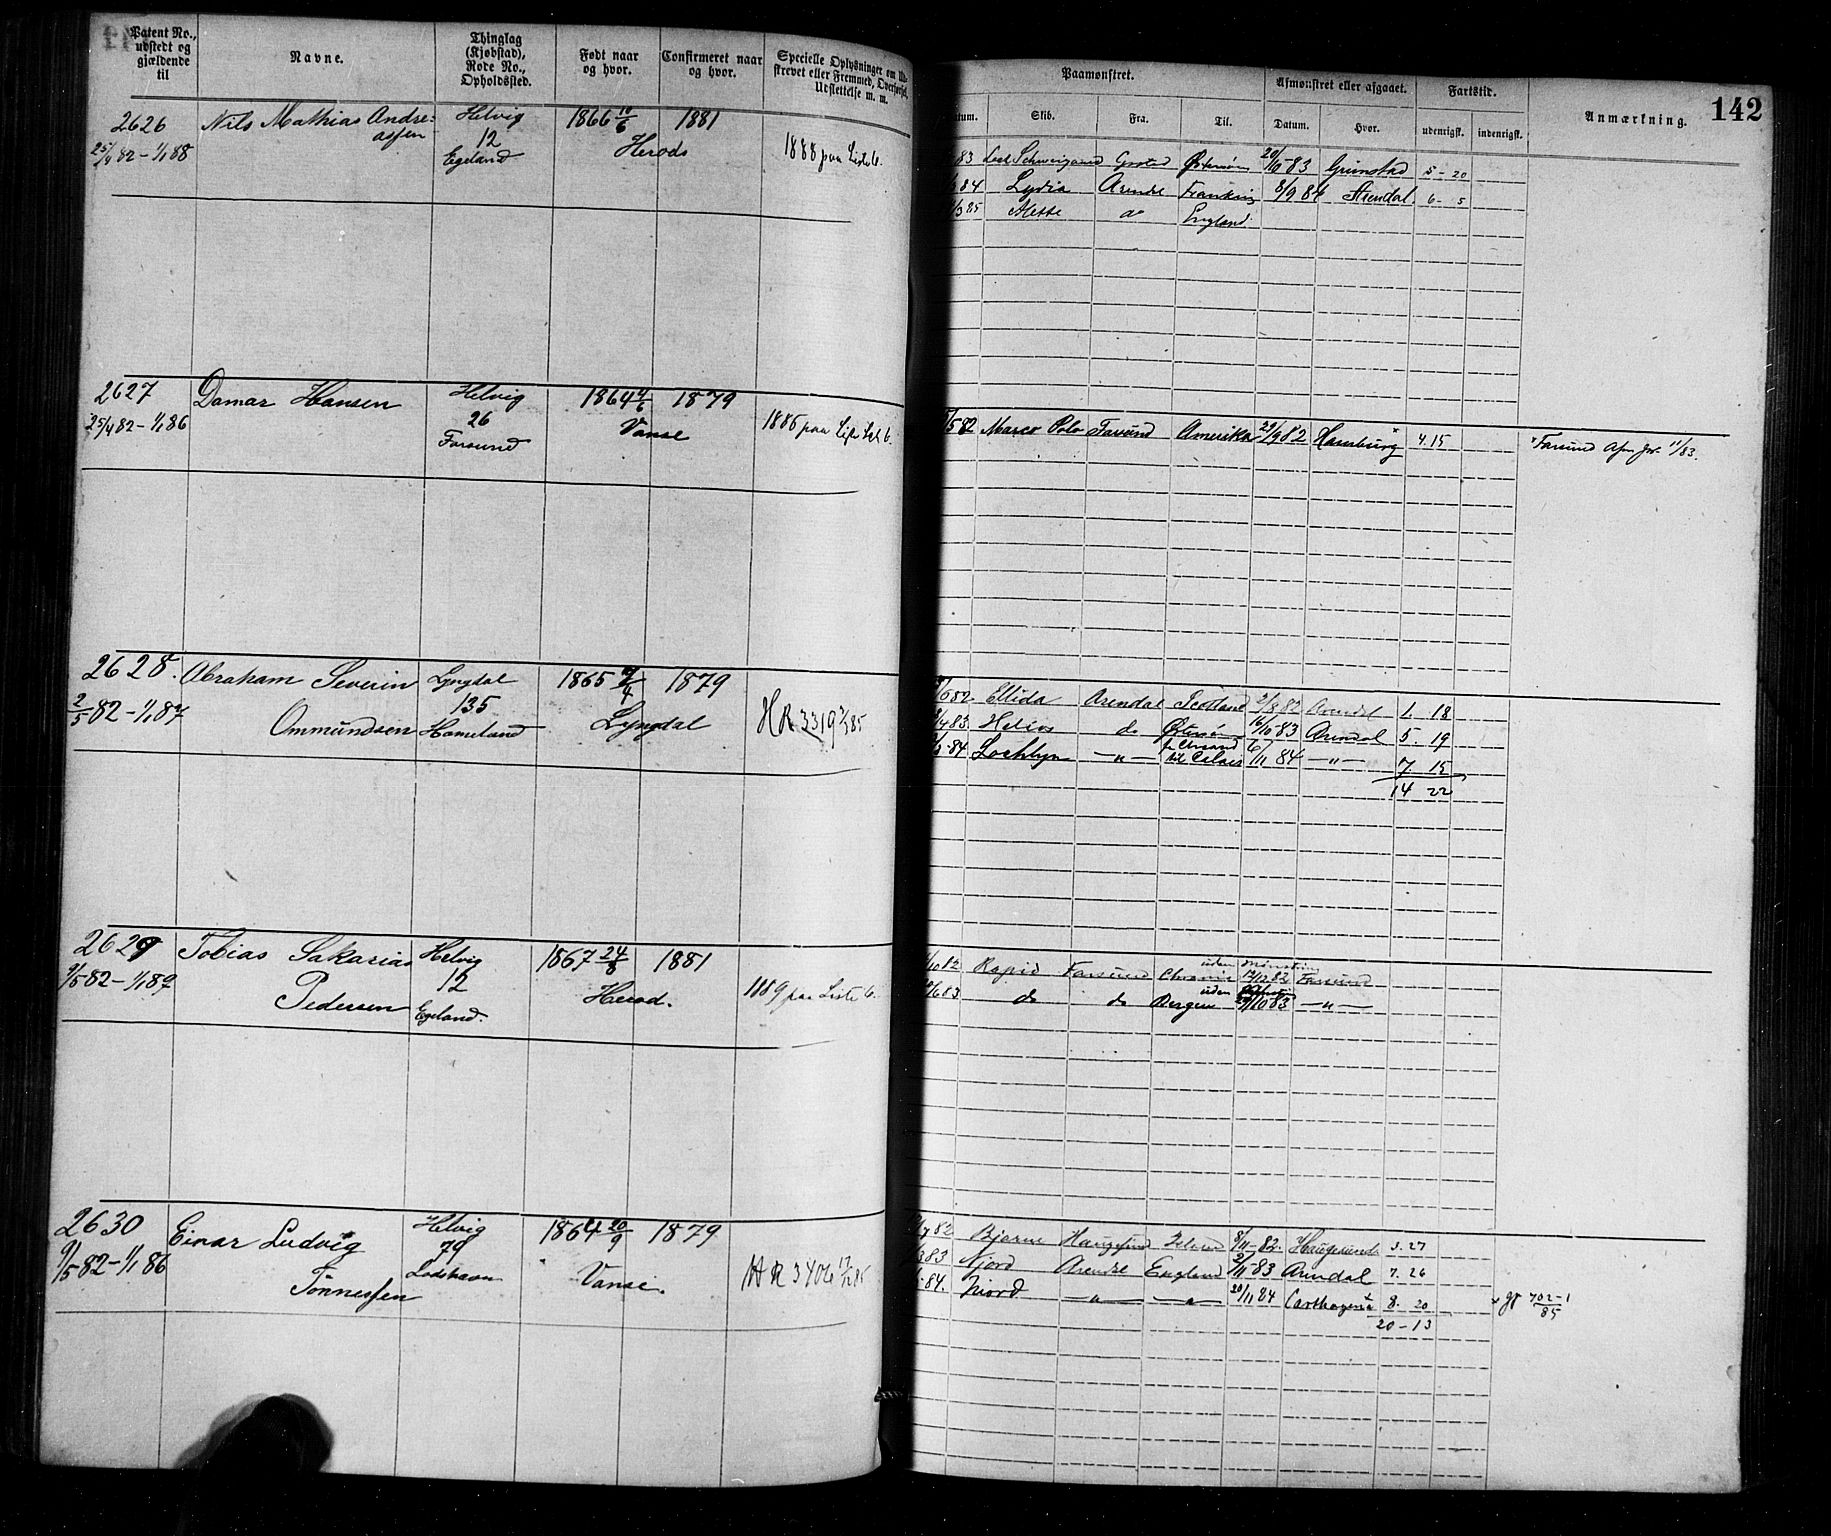 Patent No., udstedt og gjældende til
Navne.
Thinglag (Kjøbstad), Rode No., Opholdssted.
Født naar og hvor.
Confirmeret naar og hvor.
Specielle Oplysninger om Ud-
skrevet eller Fremmed, Overførsel,
Udslettelse m. m.
Paamønstret.
Afmønstret eller afgaaet.
Fartstid.
Anmærkning.
142
Datum. Skib. Fra. Til. Datum. Hvor. udenrigsk. indenrigsk.
2626 Nils Mathias Andre- Helvig 1866 10/6 1881
assen 12 Herods
25/4 82 - 1/1 88 Egeland 1888 paa Liste 6.
83 Schweigaard Grstad Østersøen 20/10 83 Grimstad 5 - 20
84 Lydia Arendl Frankrig 8/9 84 Arendal 6 - 5
/3 85 Alette do England.
2627 Damar Hansen Helvig 1864 4/6 1879
25/4 82 - 1/1 86 26 Vanse
Farsund 1886 paa 6.
/5 82 Marco Polo Farsund Amerika 29/9 82 Hamburg 4. 15 Farsund 11/83.
2628. Abraham Severin Lyngdal 1865 1879
2/5 82 - 1/1 87 Ommundsen 135 Lyngdal
Homeland HR 3319 85
/6 82. Ellida Arendal Scotland 2/8 82 Arendl 1. 18
/4 83. Helios do Østersøen 16/10 83 Arendal 5. 19
84 Lochlyn — " — til 6/11 84 — " — 7. 15
14 22
2629 Tobias Sakarias Helvig 1867 24/8 1881
9/5 82 - 1/1 89 Pedersen 12 Herad.
Egeland. 1889 paa Liste 6.
uden
/10 82 Rapid Farsund 82 Farsund
uden
/6 83 do do Bergen /10 83 — " —
2630 Einar Ludvig Helvig 1864 20/9 1879
9/5 82 - 1/1 86 79 Vanse.
Tønnessen Lodshavn HR 3406 85
82 Bjarne Haugesund 8/11 - 82. Haugesund 3. 27
83 Njord Arendl England 2/11 - 83 Arendal 7. 26
84. Njord — " — — " — 20/11 84 Carthagena 8. 20 702-1/85
20 - 13